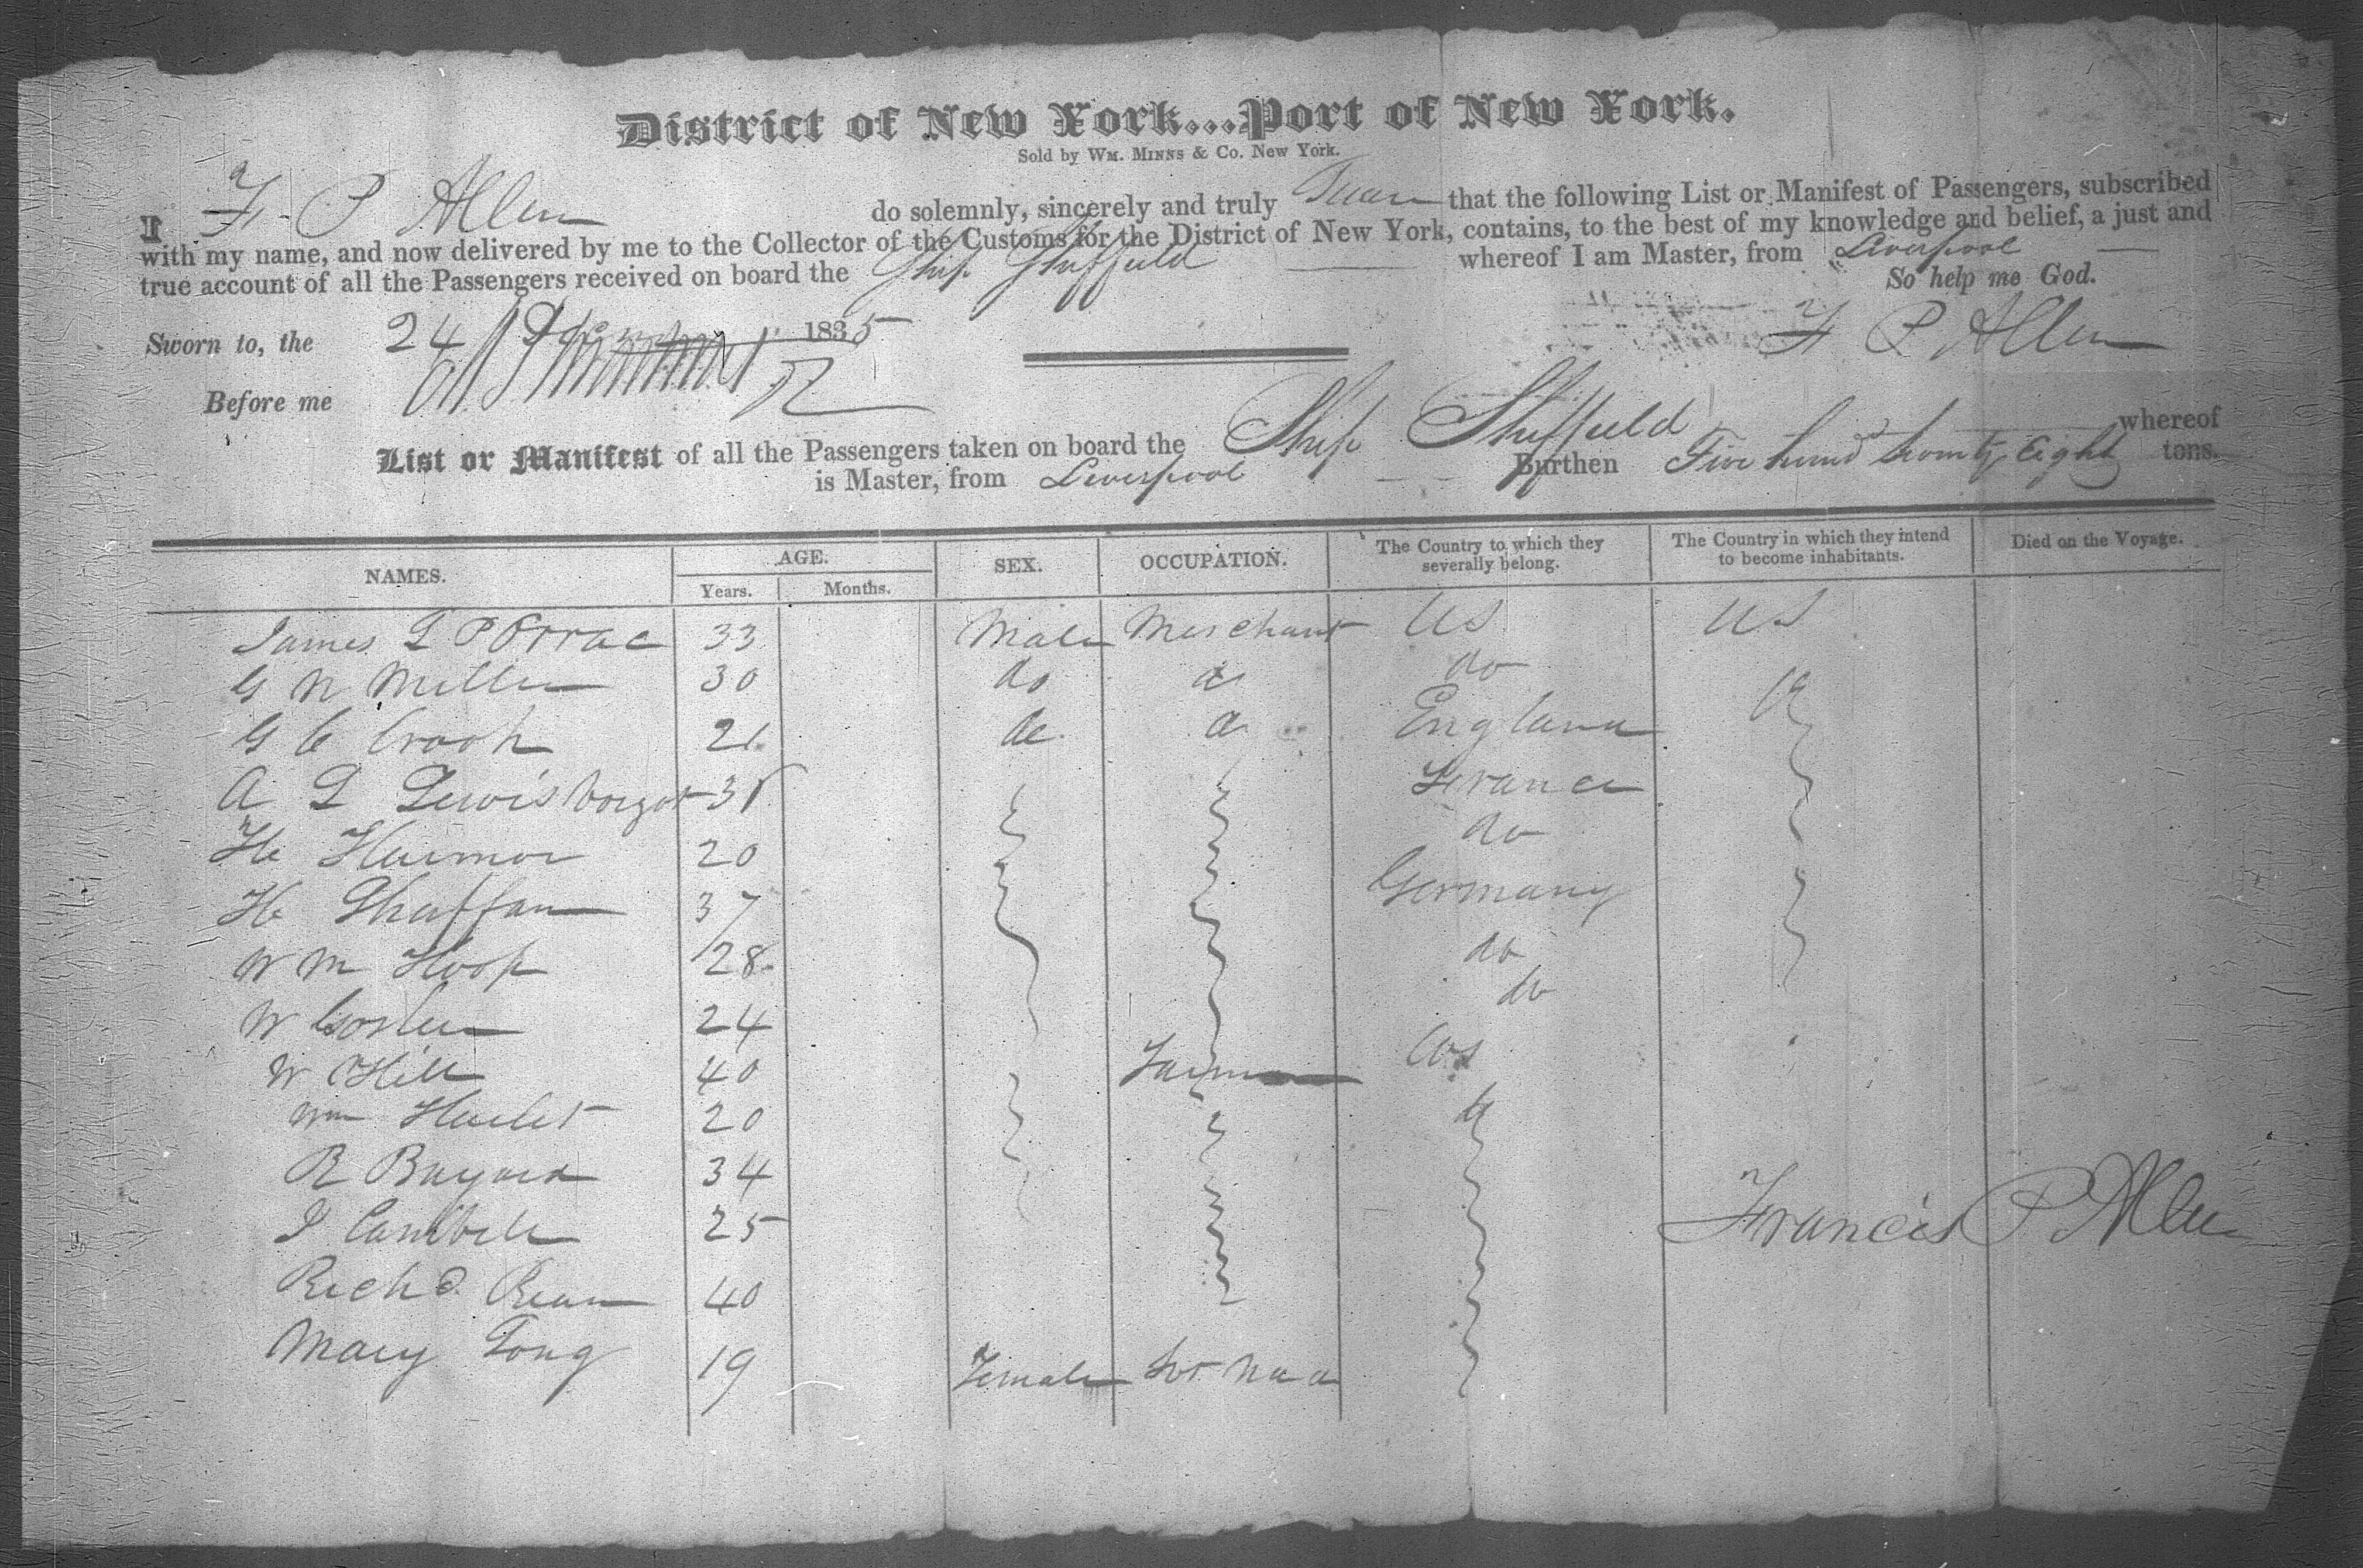 District of New York...Port of New York.
Sold by Wm. Minns & Co. New York.
I F P Allen do solemnly, sincerely and truly Swear that the following List or Manifest of Passengers, subscribed
with my name, and now delivered by me to the Collector of the Customs for the District of New York, contains, to the best of my knowledge and belief, a just and
true account of all the Passengers received on board the Ship Sheffield whereof I am Master, from Liverpool
So help me God.
Sworn to, the 24 1835 F P Allen
Before me
List or Manifest of all the Passengers taken on board the Ship Sheffield whereof
is Master, from Liverpool Burthen Five hund twenty Eight tons.
NAMES. AGE. SEX. OCCUPATION. The Country to which they severally belong. The Country in which they intend to become inhabitants. Died on the Voyage.
Years. Months.
James L P 33 Male Merchant US US
G N Miller 30 do do do
G C Crook 21 do do England
A L 31 France
H 20 do
H 37 Germany
Wm Hoop 28 do
W 24 do
W Hill 40 Farmer US
Wm 20 do
R Bayard 34
J Cambell 25
Richd 40
Mary Long 19 Female
Francis P Allen